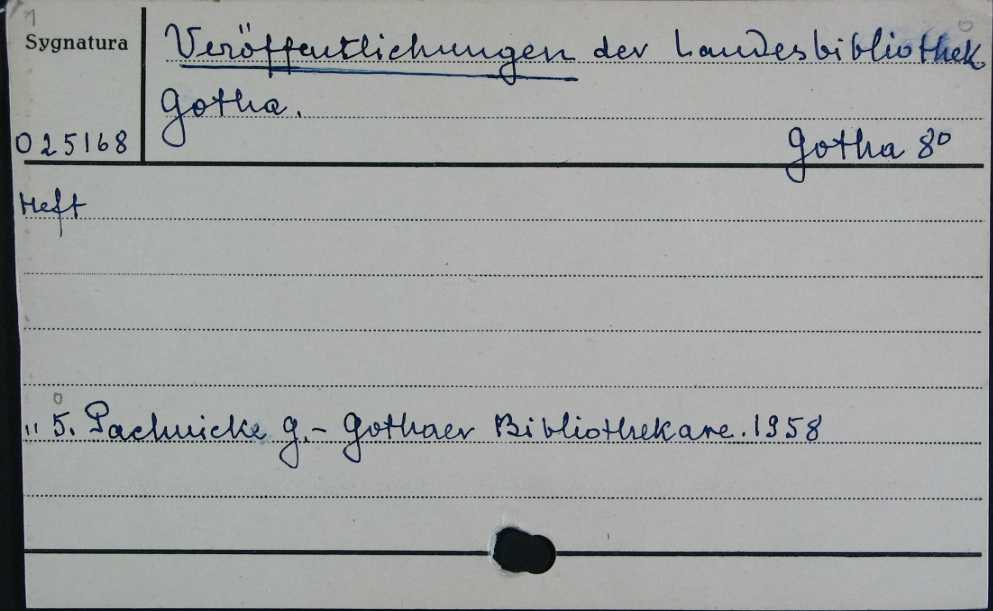 Sygnatura
Veröffentlichungen der Landesbibliothek
Gotha.
025168
Gotha 8⁰
Heft
" 5. Pachnicke G.- Gothaer Bibliothekare. 1958